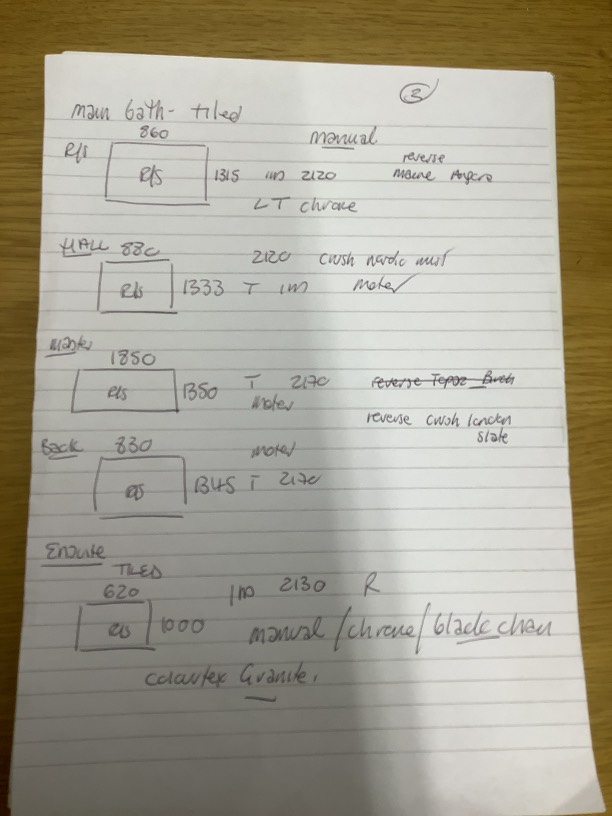 3
main bath - tiled
860
R/S
R/S 1315 IM 2120
manual
reverse
LT chrome
HALL 880 2120 cwsh nordic
R/S 1333 T IM motor
master
1850
R/S 1350 T 2170 reverse Topaz Birch
motor
reverse cwsh london
slate
Back 830 motor
R/S 1345 T 2170
Ensuite
TILED
620 IM 2130 R
R/S 1000 manual/chrome/black chain
colourtex Granite.